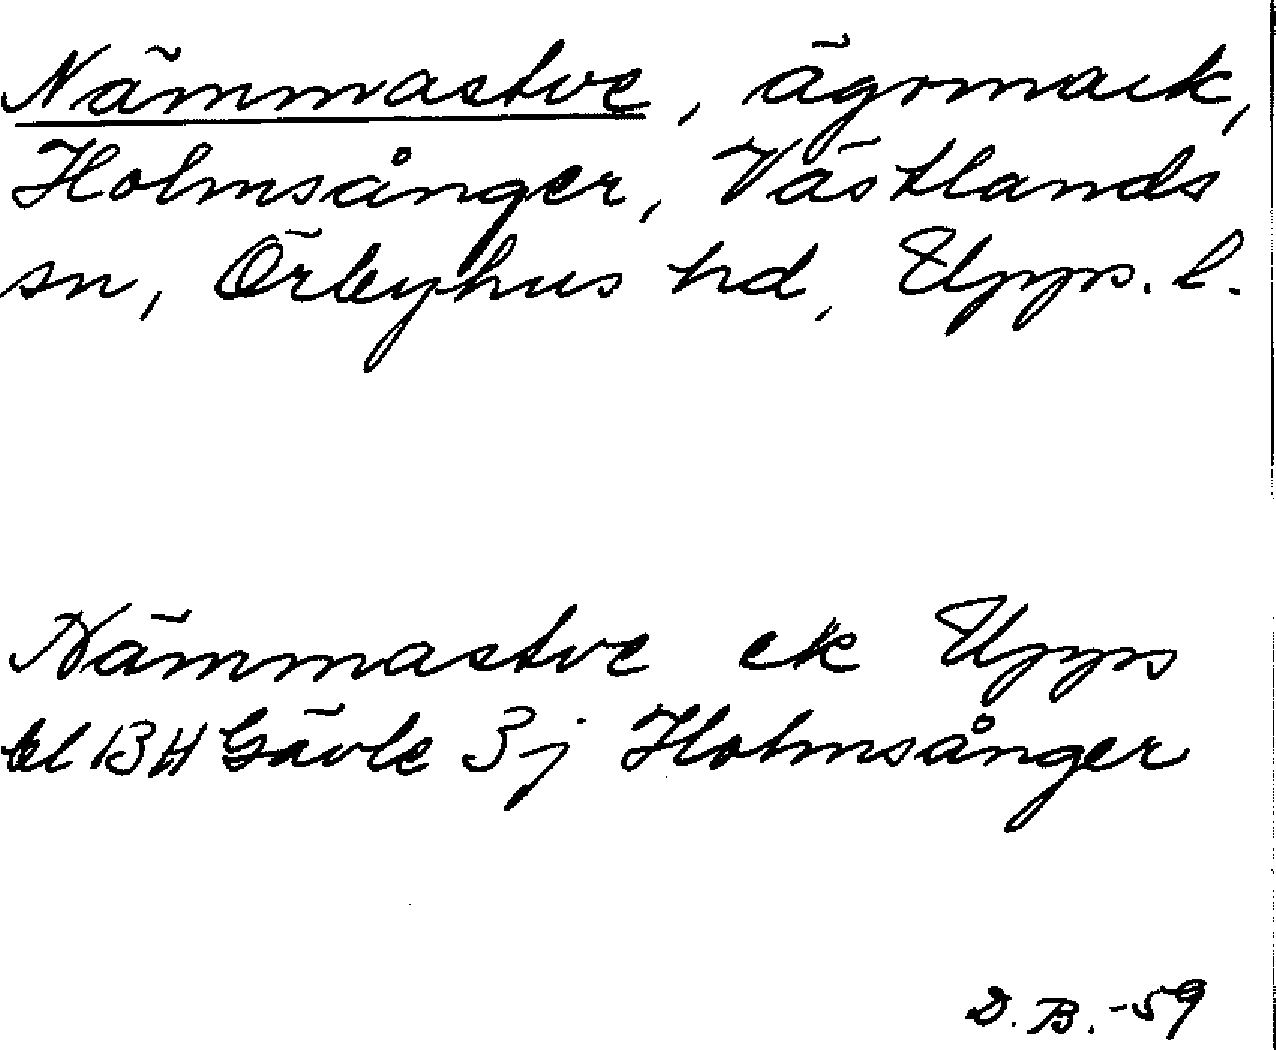 Nämmastve, ägomark,
Holmsånger, Västlands
sn, Örbyhus hd, Upps. l.
Nämmastve ek Upps
bl BH Gävle 3j Holmsånger
D. B. -59